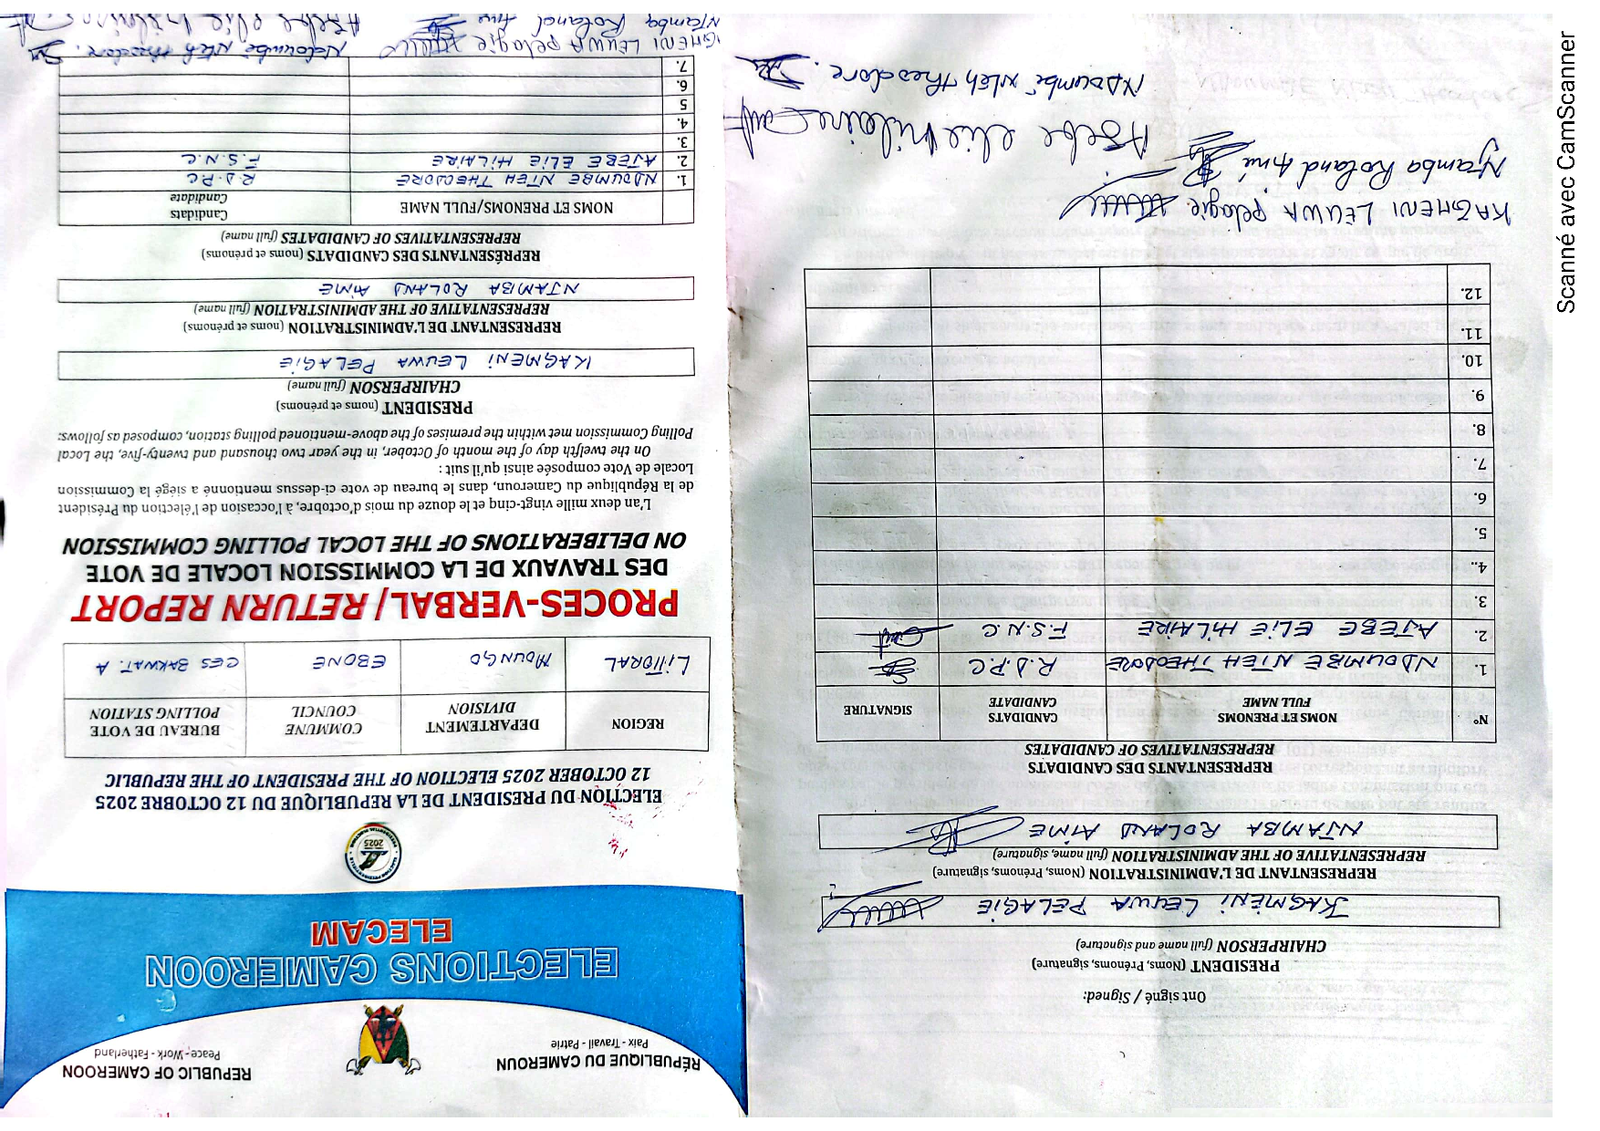 RÉPUBLIQUE DU CAMEROUN
Paix - Travail - Patrie
REPUBLIC OF CAMEROON
Peace - Work - Fatherland
ELECTIONS CAMEROON
ELECAM
2025
ELECTION DU PRESIDENT DE LA REPUBLIQUE DU 12 OCTOBRE 2025
12 OCTOBER 2025 ELECTION OF THE PRESIDENT OF THE REPUBLIC
REGION
DEPARTEMENT
DIVISION
COMMUNE
COUNCIL
BUREAU DE VOTE
POLLING STATION
LITTORAL
MOUNGO
EBONE
CES BAKWAT. A
PROCES-VERBAL/ RETURN REPORT
DES TRAVAUX DE LA COMMISSION LOCALE DE VOTE
ON DELIBERATIONS OF THE LOCAL POLLING COMMISSION
L'an deux mille vingt-cinq et le douze du mois d'octobre, à l'occasion de l'élection du Président
de la République du Cameroun, dans le bureau de vote ci-dessus mentionné a siégé la Commission
Locale de Vote composée ainsi qu'il suit :
On the twelfth day of the month of October, in the year two thousand and twenty-five, the Local
Polling Commission met within the premises of the above-mentioned polling station, composed as follows:
PRESIDENT (noms et prénoms)
CHAIRPERSON (full name)
KAGMENI LEUWA PELAGIE
REPRESENTANT DE L'ADMINISTRATION (noms et prénoms)
REPRESENTATIVE OF THE ADMINISTRATION (full name)
NJAMBA ROLAND AIME
REPRÉSENTANTS DES CANDIDATS (noms et prénoms)
REPRESENTATIVES OF CANDIDATES (full name)
NOMS ET PRENOMS/FULL NAME
Candidats
Candidate
1. NDOUMBE NTEH THEODORE R.D.P.C
2. AJEBE ELIE HILAIRE F.S.N.C
3.
4.
5
6.
7.
KAGMENI LEUWA Pelagie
Ndoumbe Nteh Theodore.
Njamba Roland Aimé
Ajebe elie hilaire
Ont signé / Signed:
PRESIDENT (Noms, Prénoms, signature)
CHAIRPERSON (full name and signature)
KAGMENI LEUWA PELAGIE
REPRESENTANT DE L'ADMINISTRATION (Noms, Prénoms, signature)
REPRESENTATIVE OF THE ADMINISTRATION (full name, signature)
NJAMBA ROLAND AIME
REPRESENTANTS DES CANDIDATS
REPRESENTATIVES OF CANDIDATES
N°
NOMS ET PRENOMS
FULL NAME
CANDIDATS
CANDIDATE
SIGNATURE
1. NDOUMBE NTEH THEODORE R.D.P.C
2. AJEBE ELIE HILAIRE F.S.N.C
3.
4..
5.
6.
7.
8.
9.
10.
11.
12.
KAGMENI LEUWA Pelagie
Njamba Roland Aimé
Ajebe elie hilaire
Ndoumbe Nteh theodore.
Scanné avec CamScanner